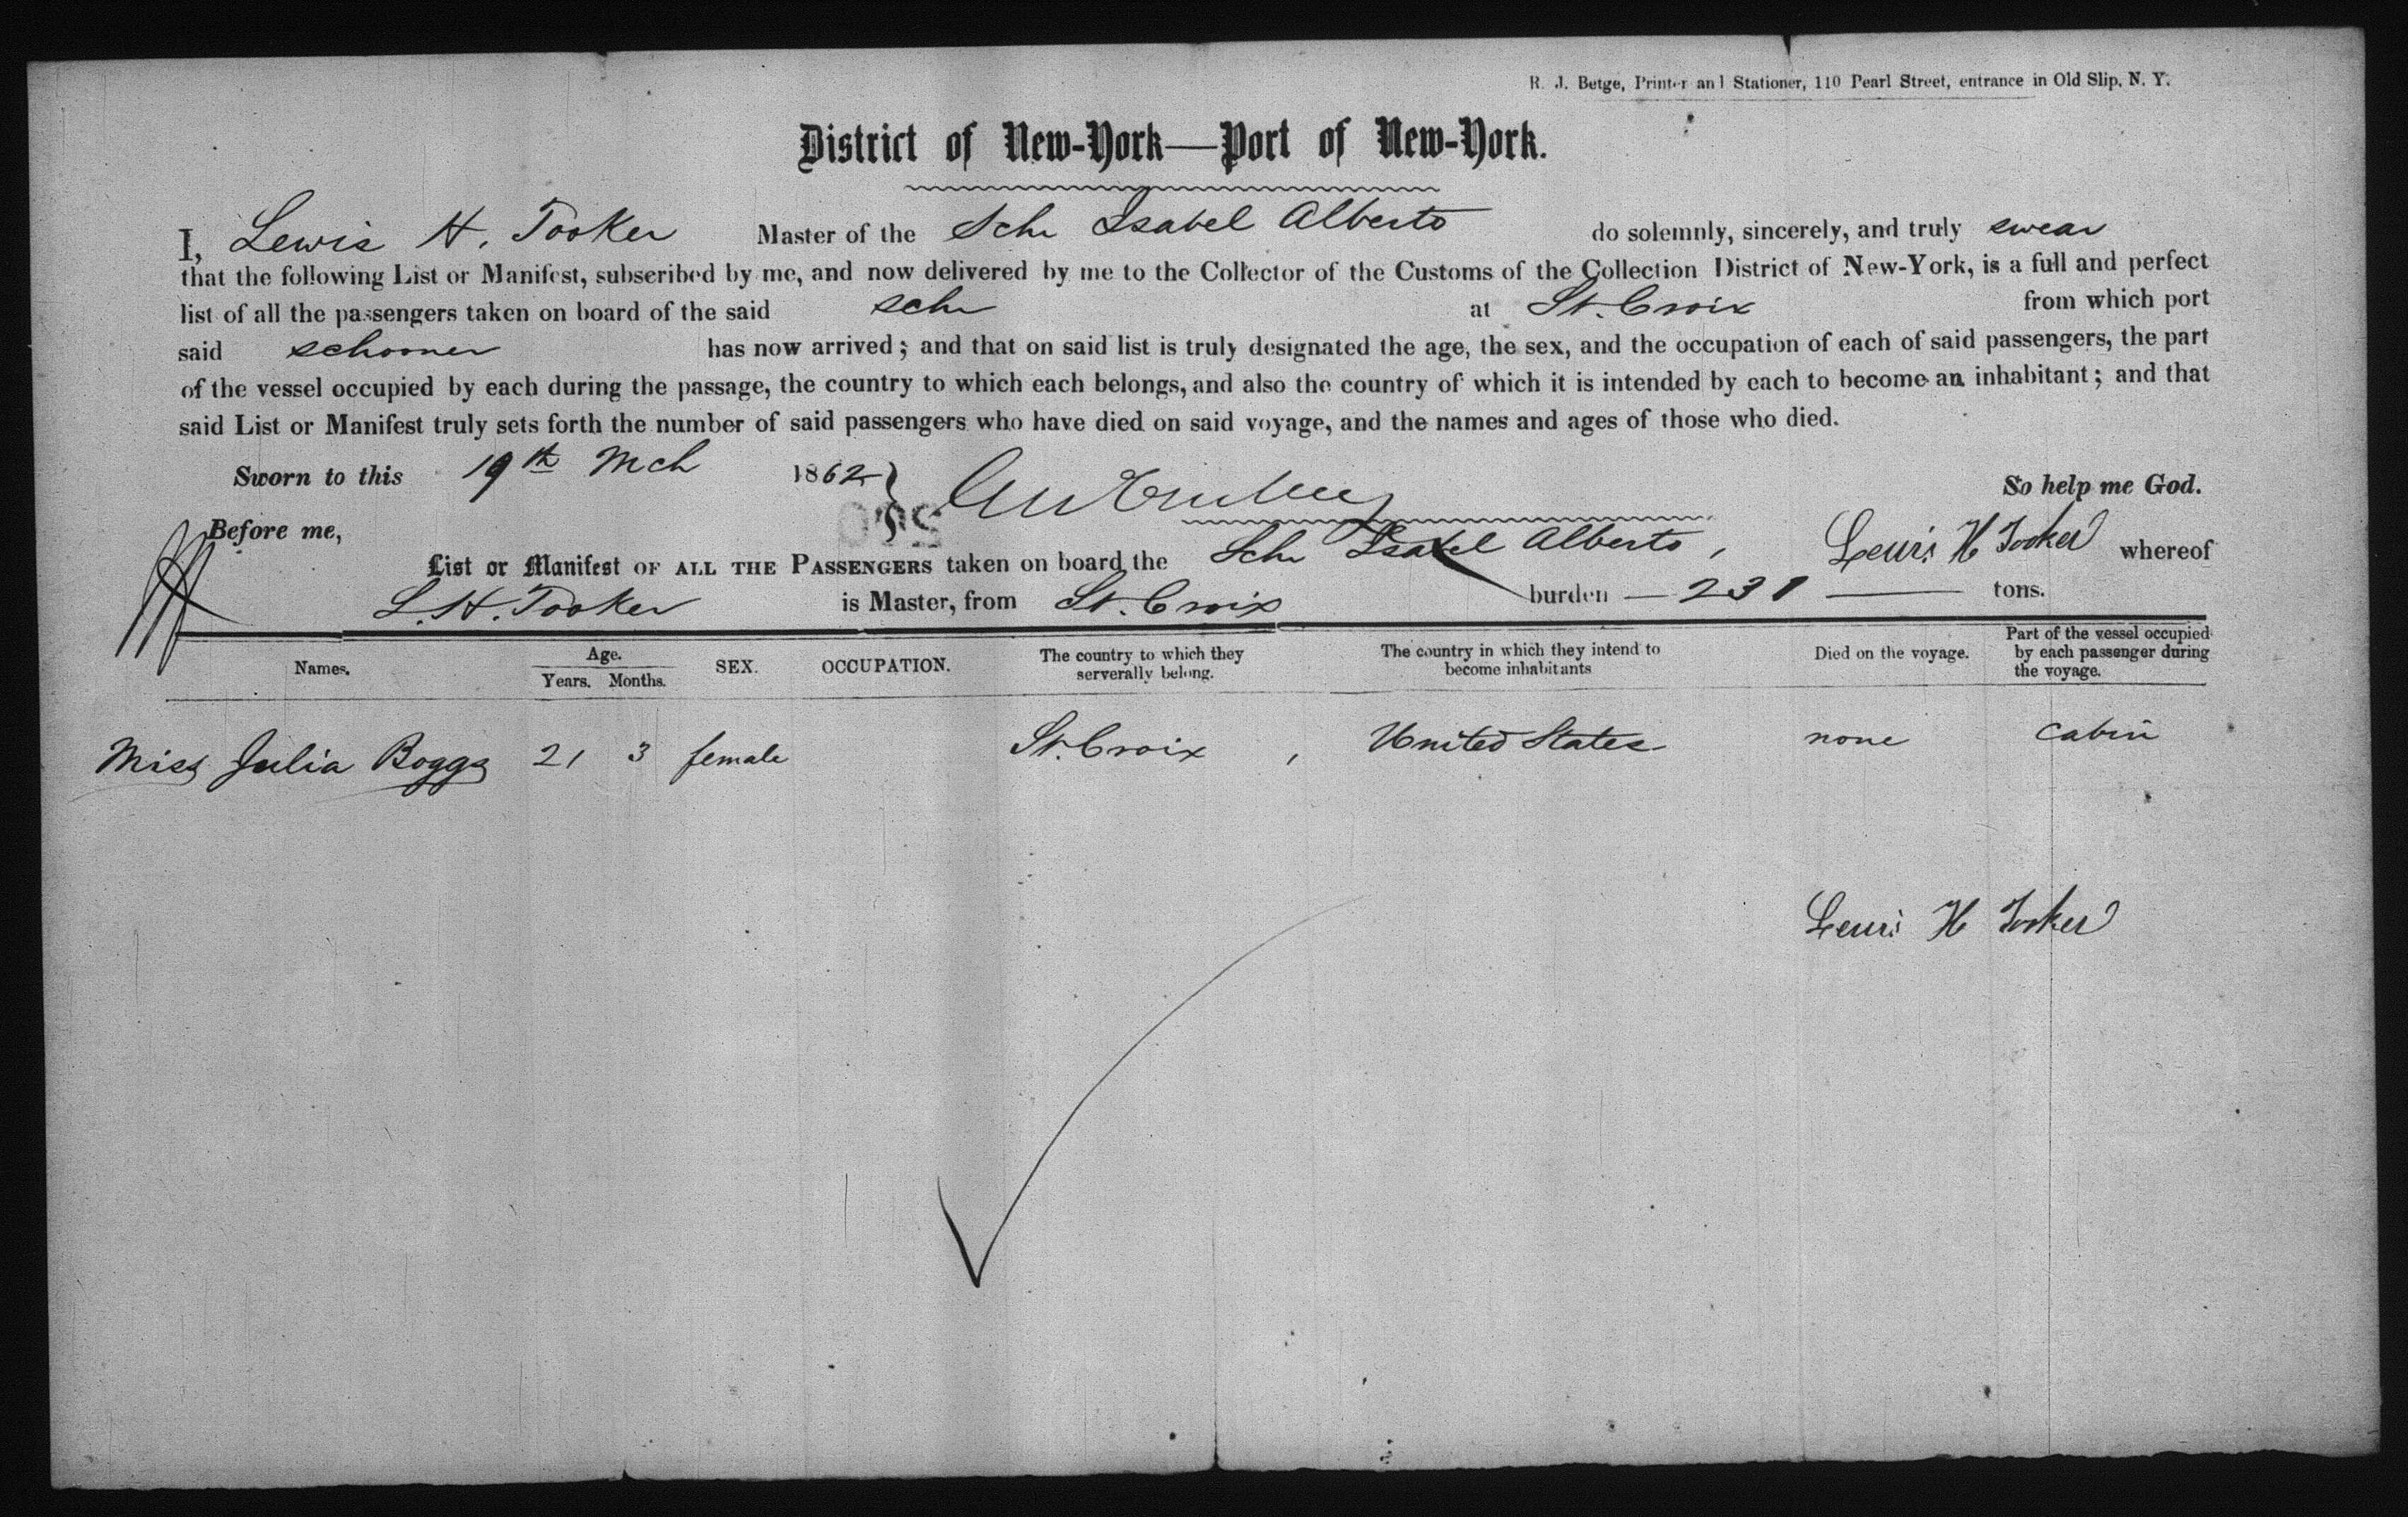 R. J. Betge, Printer and Stationer, 110 Pearl Street, entrance in Old Slip, N. Y.
District of New-York—Port of New-York.
I, Lewis H. Tooker Master of the Schr Isabel Alberto do solemnly, sincerely, and truly swear
that the following List or Manifest, subscribed by me, and now delivered by me to the Collector of the Customs of the Collection District of New-York, is a full and perfect
list of all the passengers taken on board of the said schr at St. Croix from which port
said schooner has now arrived; and that on said list is truly designated the age, the sex, and the occupation of each of said passengers, the part
of the vessel occupied by each during the passage, the country to which each belongs, and also the country of which it is intended by each to become an inhabitant; and that
said List or Manifest truly sets forth the number of said passengers who have died on said voyage, and the names and ages of those who died.
Sworn to this 19th Mch 1862 So help me God.
Before me, Lewis H Tooker
List or Manifest OF ALL THE PASSENGERS taken on board the Schr Isabel Alberto, whereof
L. H. Tooker is Master, from St. Croix burden — 231 — tons.
Names. Age. Years. Months. SEX. OCCUPATION. The country to which they serverally belong. The country in which they intend to become inhabitants Died on the voyage. Part of the vessel occupied by each passenger during the voyage.
Miss Julia Boggs 21 3 female St. Croix, United States none cabin
Lewis H Tooker